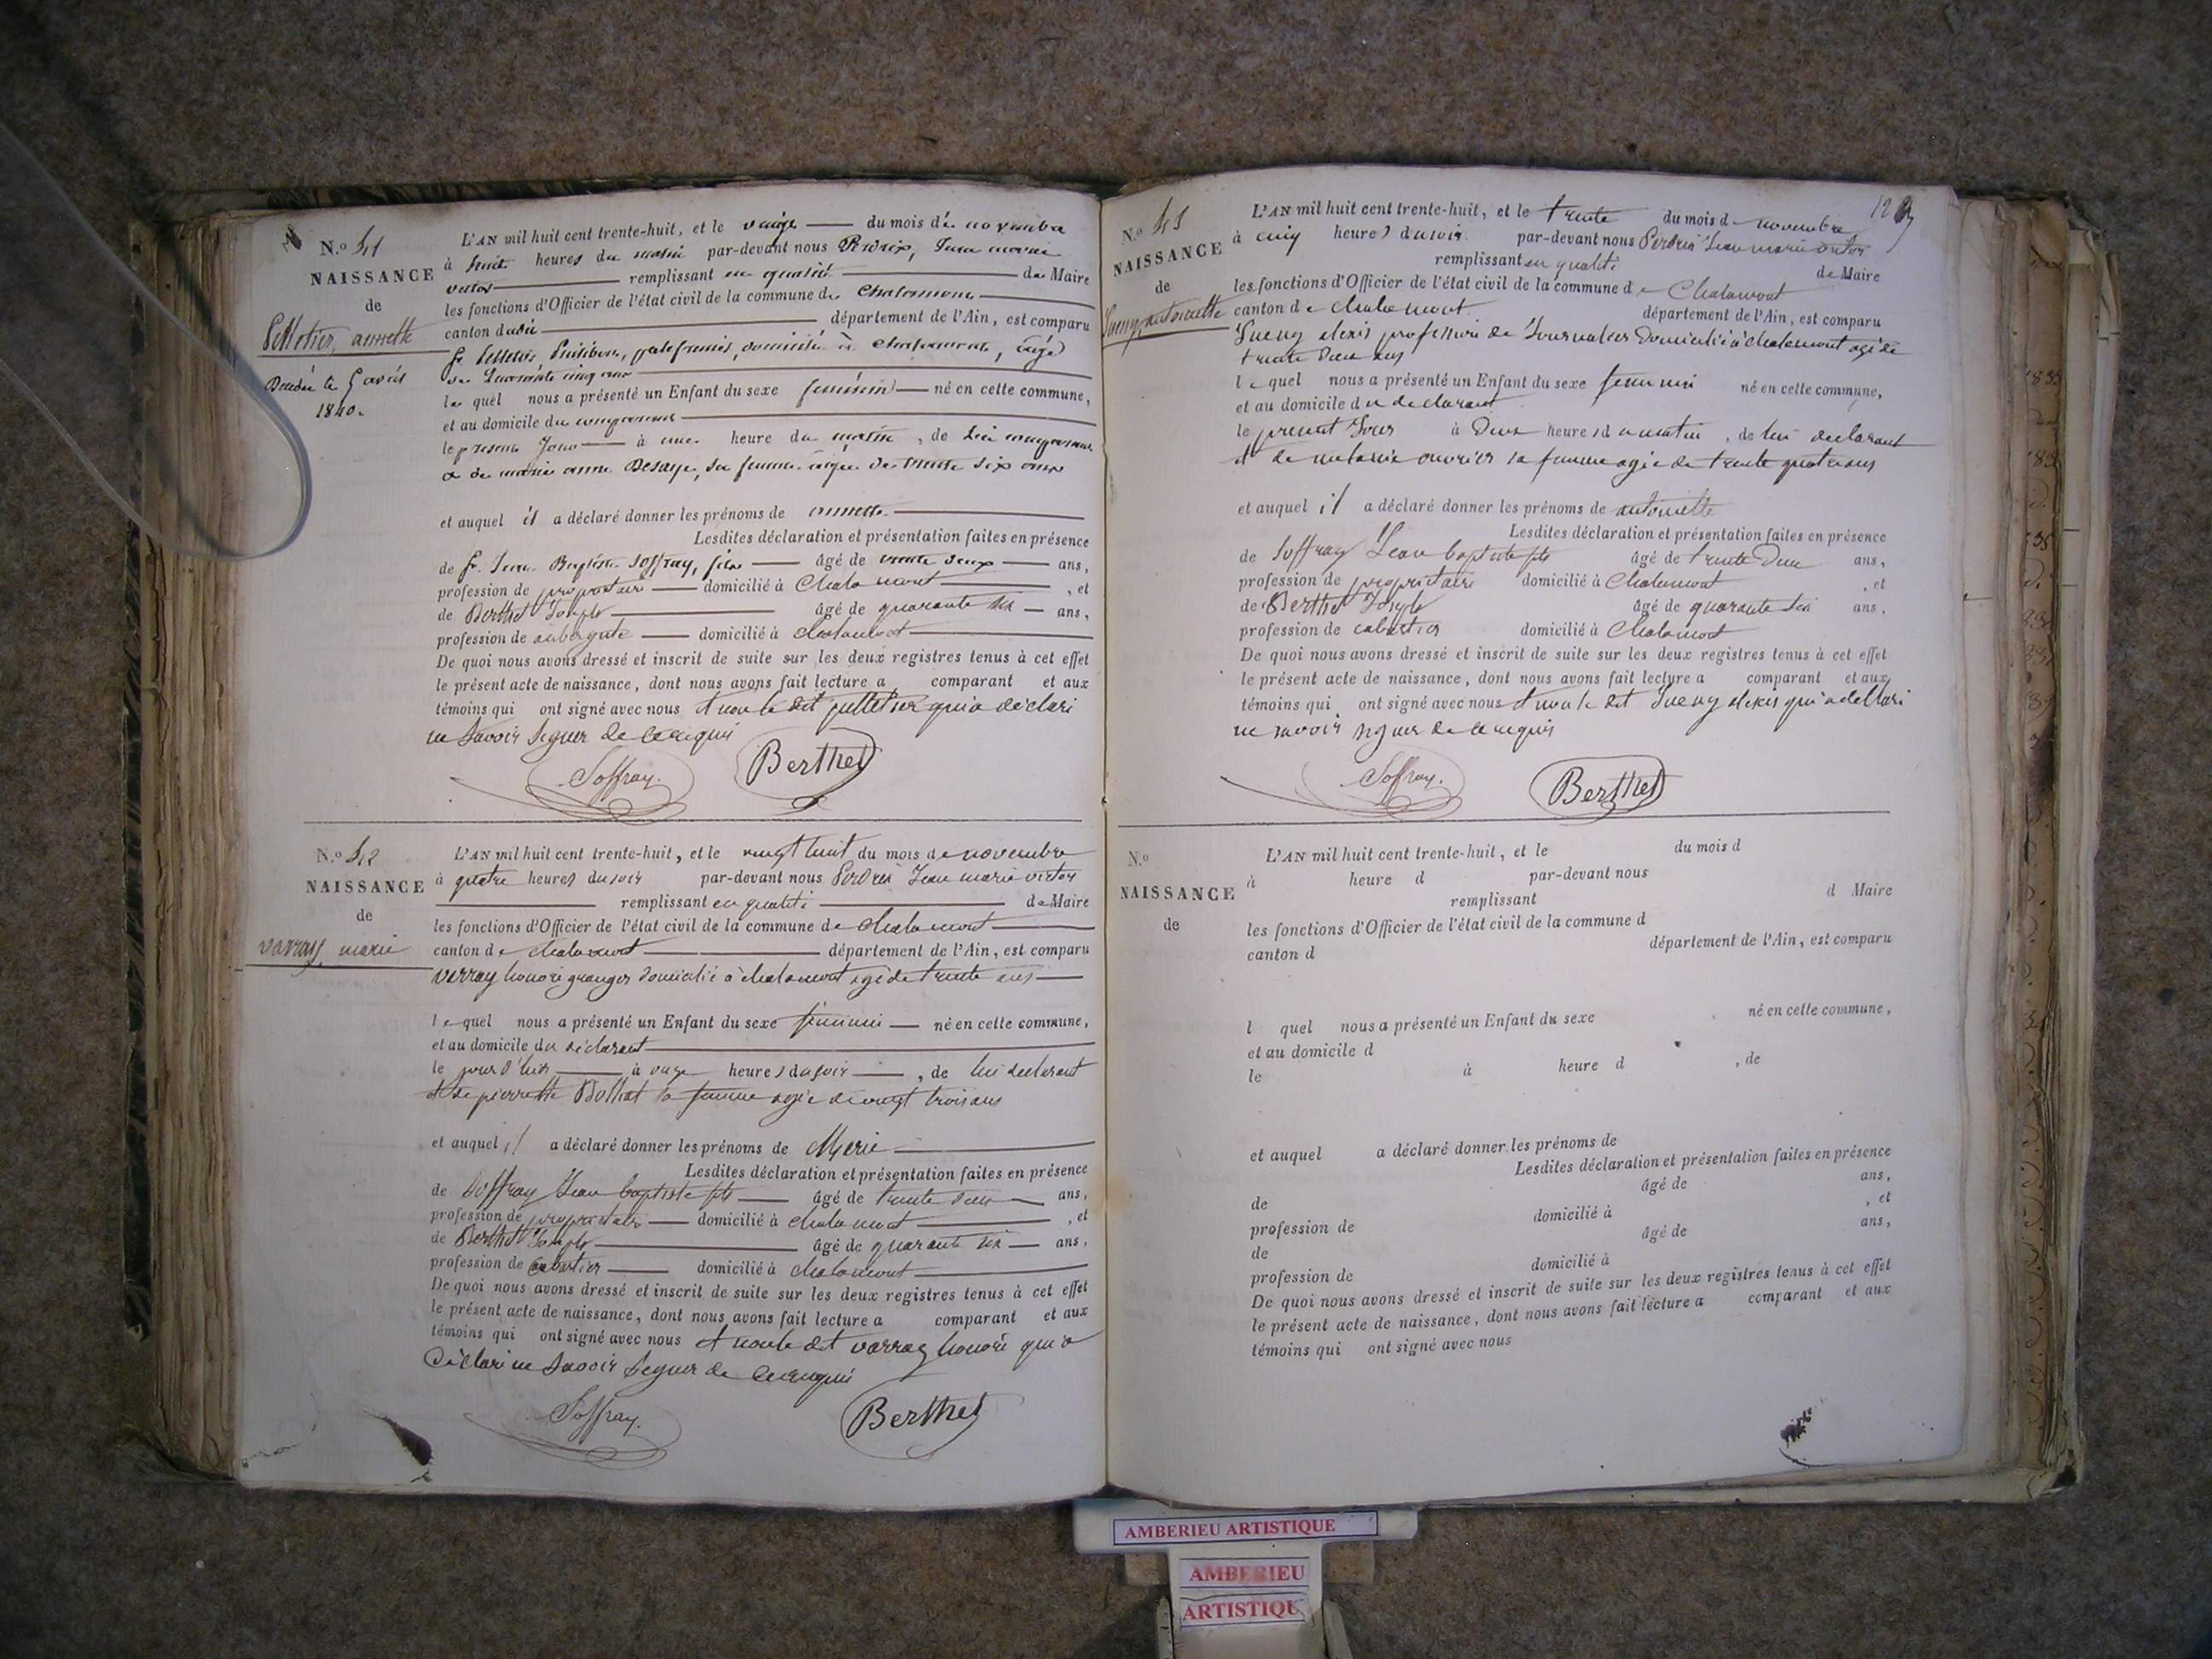 N.º 41
NAISSANCE
de
Pelletier, annette
Décédée le 5 avril
1840.
L'AN mil huit cent trente-huit, et le du mois de novembre
à huit heures du matin par-devant nous Perdrix, Jean marie
victor remplissant en qualité de Maire
les fonctions d'Officier de l'état civil de la commune de Chalamont
canton dudit département de l'Ain, est comparu
sr. Pelletier Philibert, domicilié à Chalamont, âgé
de quarante cinq ans
le quel nous a présenté un Enfant du sexe féminin né en cette commune,
et au domicile du comparant
le présent Jour à une heure du matin, de lui comparant
& de marie anne Desaye, sa femme âgée de trente six ans
et auquel il a déclaré donner les prénoms de annette
Lesdites déclaration et présentation faites en présence
de sr. Jean Baptiste Soffray, fils âgé de trente deux ans,
profession de propriétaire domicilié à Chalamont, et
de Berthet Joseph âgé de quarante six ans,
profession de aubergiste domicilié à chalamont
De quoi nous avons dressé et inscrit de suite sur les deux registres tenus à cet effet
le présent acte de naissance, dont nous avons fait lecture a comparant et aux
témoins qui ont signé avec nous et non le dit pelletier qui a déclaré
ne savoir signer de ce enquis
Soffray. Berthet
N.º 42
NAISSANCE
de
varray, marie
L'AN mil huit cent trente-huit, et le vingt huit du mois de novembre
à quatre heures du soir par-devant nous Perdrix Jean marie victor
remplissant en qualité de Maire
les fonctions d'Officier de l'état civil de la commune de chalamont
canton de chalamont département de l'Ain, est comparu
varray honoré granger domicilié à chalamont agé de trente ans
le quel nous a présenté un Enfant du sexe féminin né en cette commune,
et au domicile du déclarant
le jour d'hier à onze heures du soir, de lui déclarant
et de pierrette sa femme agée de vingt trois ans
et auquel il a déclaré donner les prénoms de Marie
Lesdites déclaration et présentation faites en présence
de Soffray Jean baptiste fils âgé de trente deux ans,
profession de propriétaire domicilié à chalamont, et
de Berthet Joseph âgé de quarante six ans,
profession de cabartier domicilié à chalamont
De quoi nous avons dressé et inscrit de suite sur les deux registres tenus à cet effet
le présent acte de naissance, dont nous avons fait lecture a comparant et aux
témoins qui ont signé avec nous et non le dit varray honoré qui a
déclaré ne savoir signer de ce enquis
Soffray. Berthet
N.º 43
NAISSANCE
de
antoinette
L'AN mil huit cent trente-huit, et le trente du mois d novembre
à cinq heures du soir par-devant nous Perdrix Jean marie victor
remplissant en qualité de Maire
les fonctions d'Officier de l'état civil de la commune de Chalamont
canton de chalamont département de l'Ain, est comparu
alexis profession de Journalier Domicilié à chalamont agé de
trente deux ans
le quel nous a présenté un Enfant du sexe feminin né en cette commune,
et au domicile du declarant
le présent Jour à Deux heures du matin, de lui declarant
et de melanie ouvrier sa femme agée de trente quatre ans
et auquel il a déclaré donner les prénoms de antoinette
Lesdites déclaration et présentation faites en présence
de Soffray Jean baptiste fils âgé de trente Deux ans,
profession de propriétaire domicilié à Chalamont, et
de Berthet Joseph âgé de quarante six ans,
profession de cabartier domicilié à Chalamont
De quoi nous avons dressé et inscrit de suite sur les deux registres tenus à cet effet
le présent acte de naissance, dont nous avons fait lecture a comparant et aux
témoins qui ont signé avec nous et non le dit alexis qui a déclaré
ne savoir signer de ce enquis
Soffray. Berthet
N.º
NAISSANCE
de
L'AN mil huit cent trente-huit, et le du mois d
à heure d par-devant nous
remplissant d Maire
les fonctions d'Officier de l'état civil de la commune d
canton d département de l'Ain, est comparu
l quel nous a présenté un Enfant du sexe né en cette commune,
et au domicile d
le à heure d , de
et auquel a déclaré donner les prénoms de
Lesdites déclaration et présentation faites en présence
de âgé de ans,
profession de domicilié à , et
de âgé de ans,
profession de domicilié à
De quoi nous avons dressé et inscrit de suite sur les deux registres tenus à cet effet
le présent acte de naissance, dont nous avons fait lecture a comparant et aux
témoins qui ont signé avec nous
AMBERIEU ARTISTIQUE
AMBERIEU
ARTISTIQU